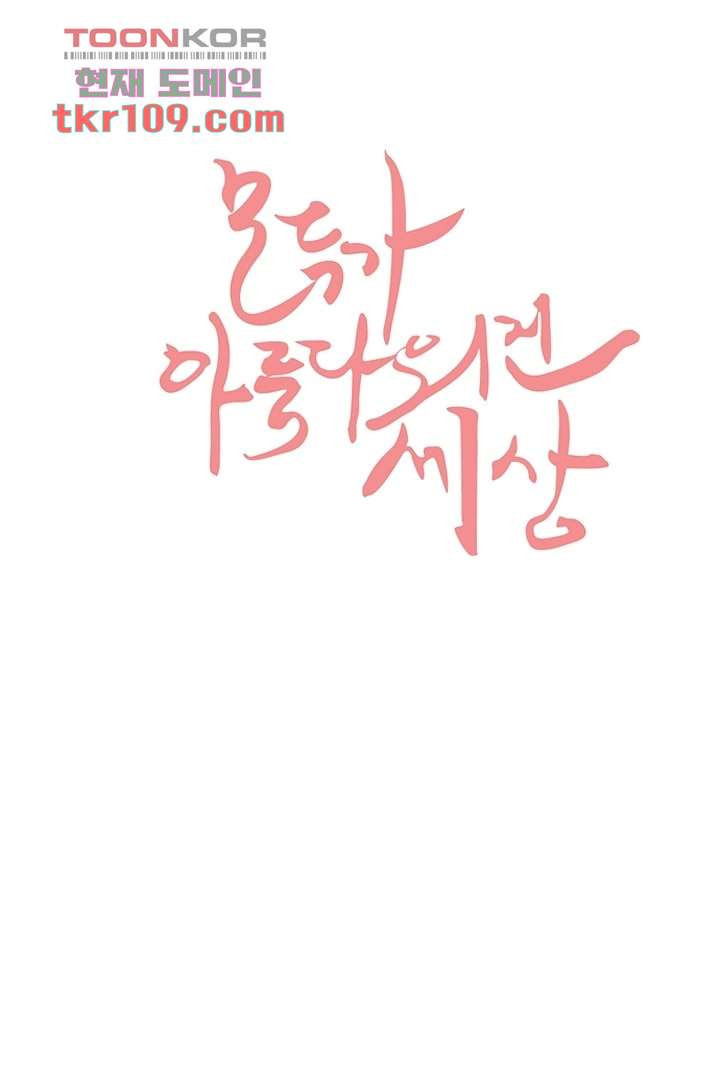 TOONKOR
현재 도메인
tkr109.com
모두가
아름다워진
세상